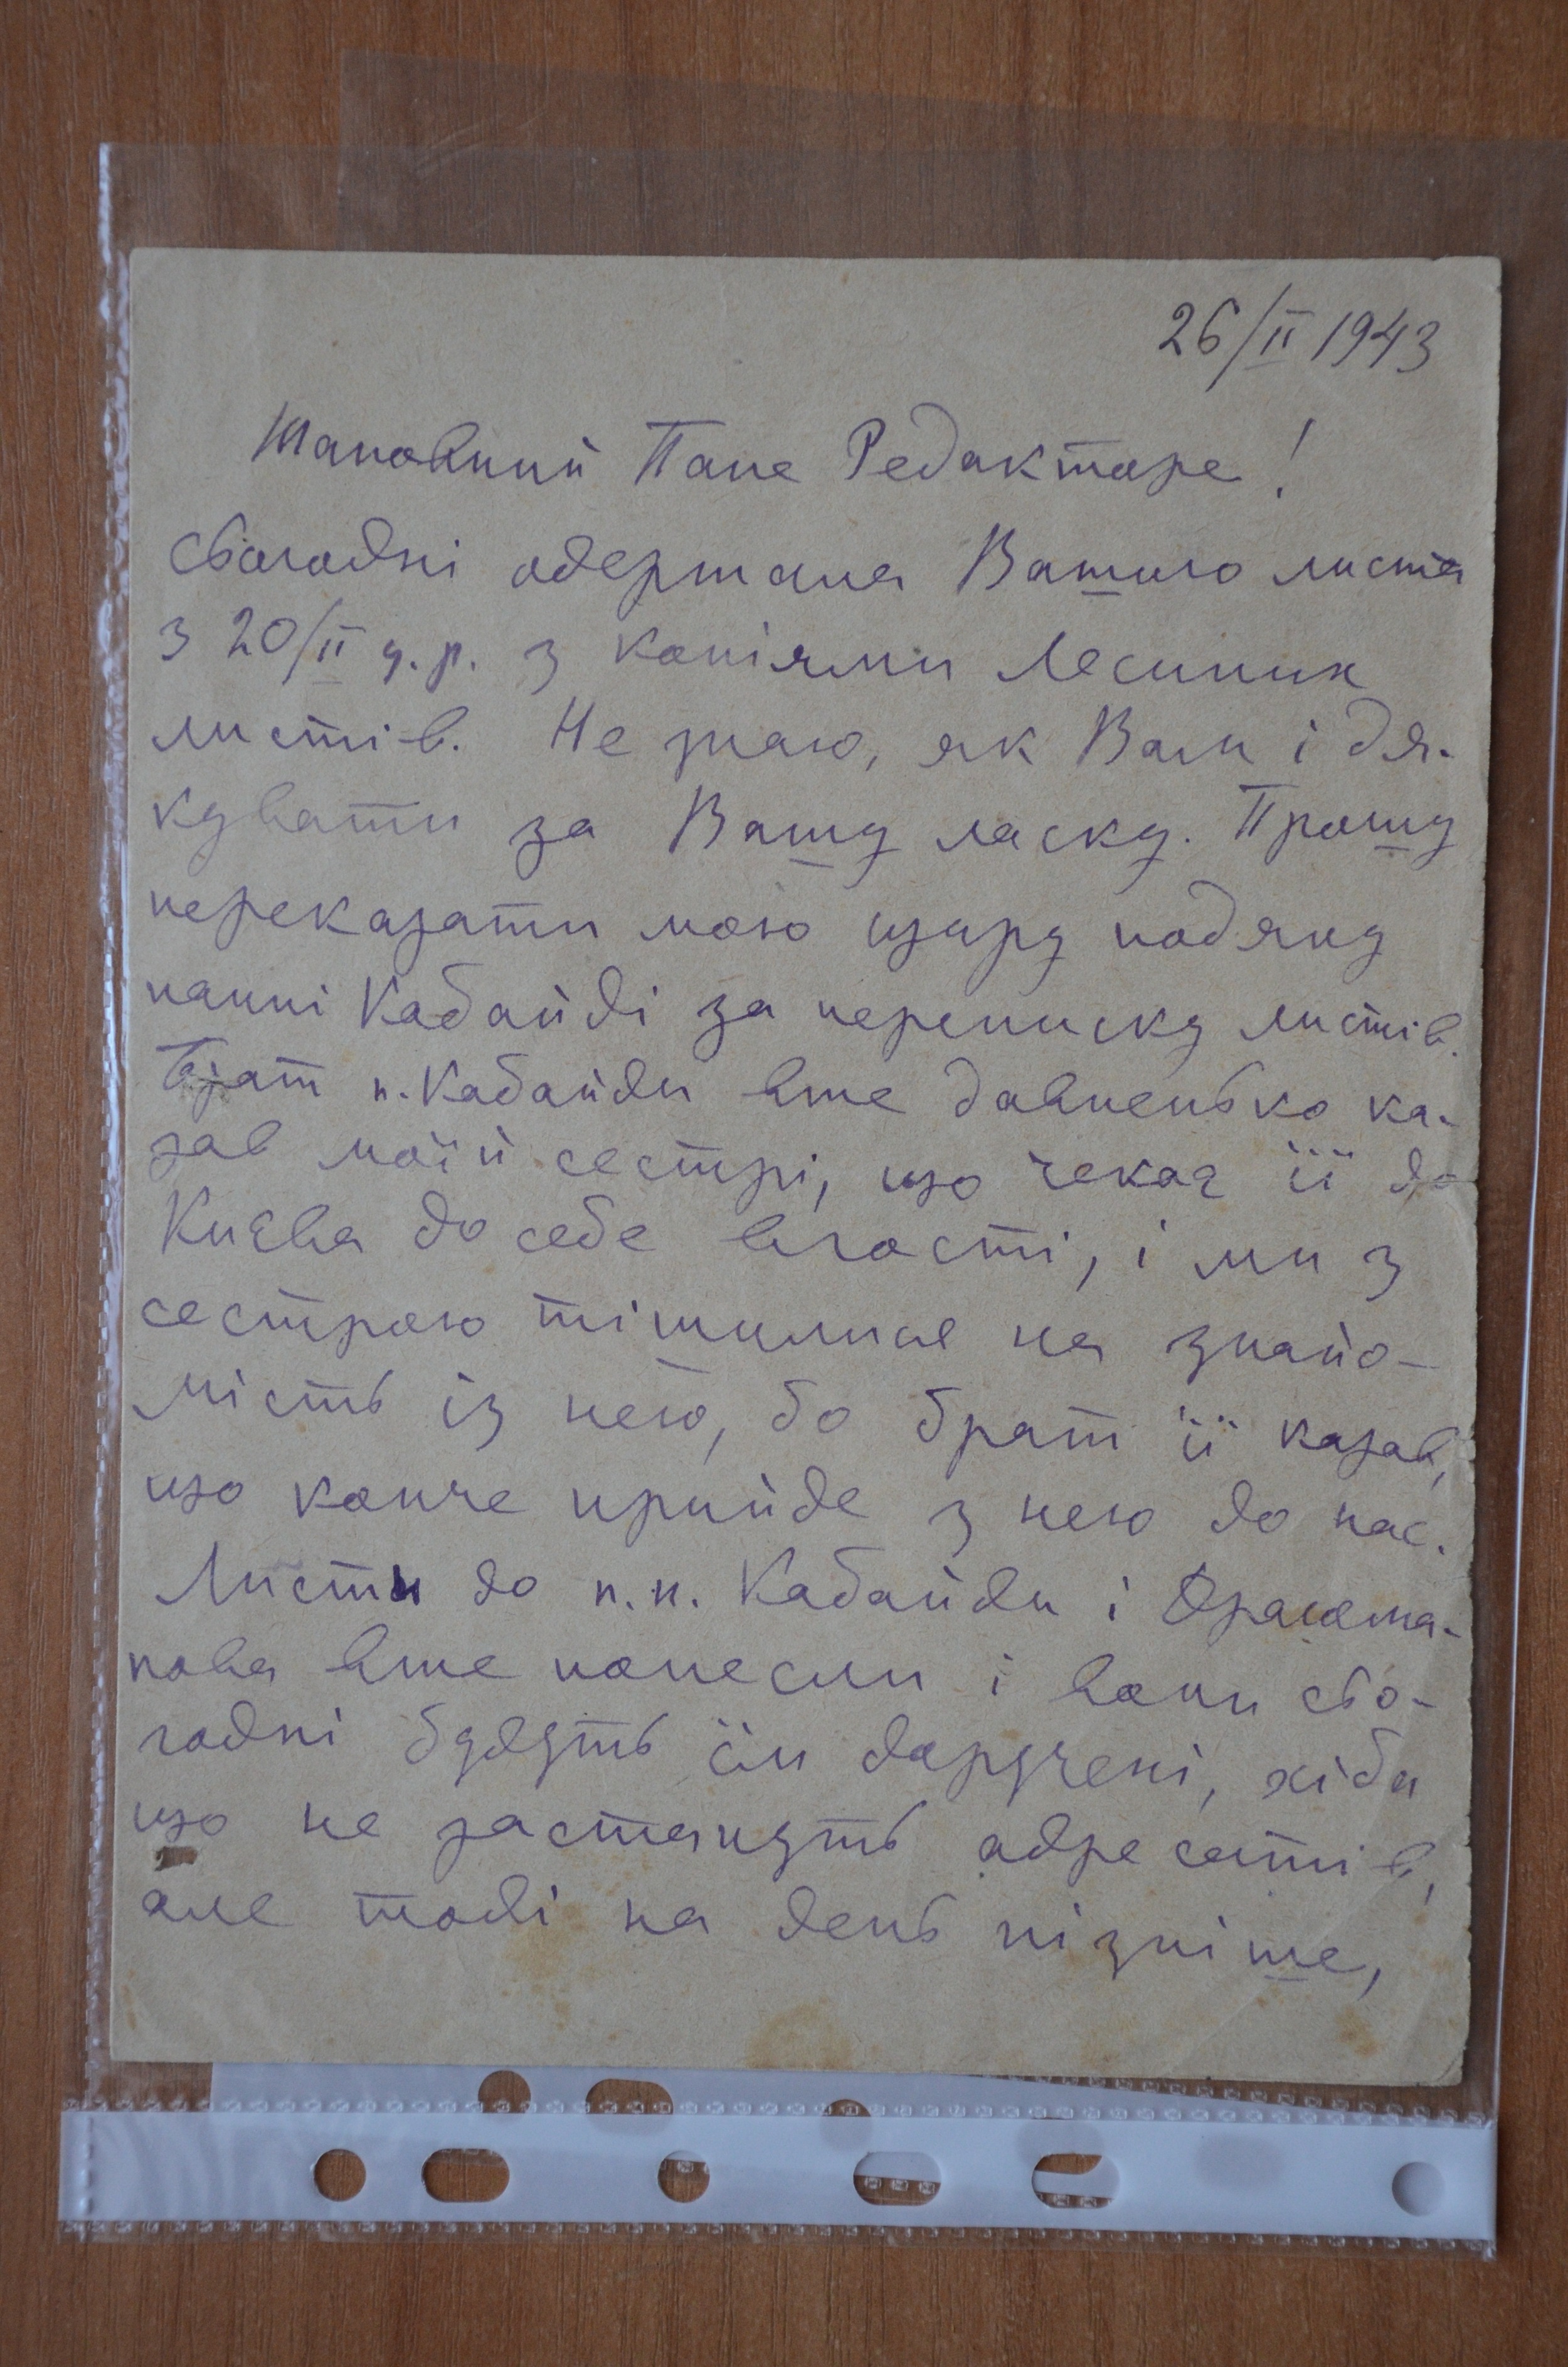 26/II 1943
Шановний Пане Редакторе!
Сьогодні одержала Вашого листа
з 20/II ц.р. з копіями Лесиних
листів. Не знаю, як Вам і дя-
кувати за Вашу ласку. Прошу
переказати мою щиру подяку
панні Кабайді за переписку листів.
Брат п. Кабайди вже давненько ка-
зав моїй сестрі, що чекає її до
Києва до себе в гості, і ми з
сестрою тішилися на знайо-
мість із нею, бо брат її казав,
що конче прийде з нею до нас.
Листи до п.п. Кабайди і Драгома-
нова вже понесли і вони сьо-
годні будуть їм доручені, хіба
що не застануть адресатів,
але тоді на день пізніше,